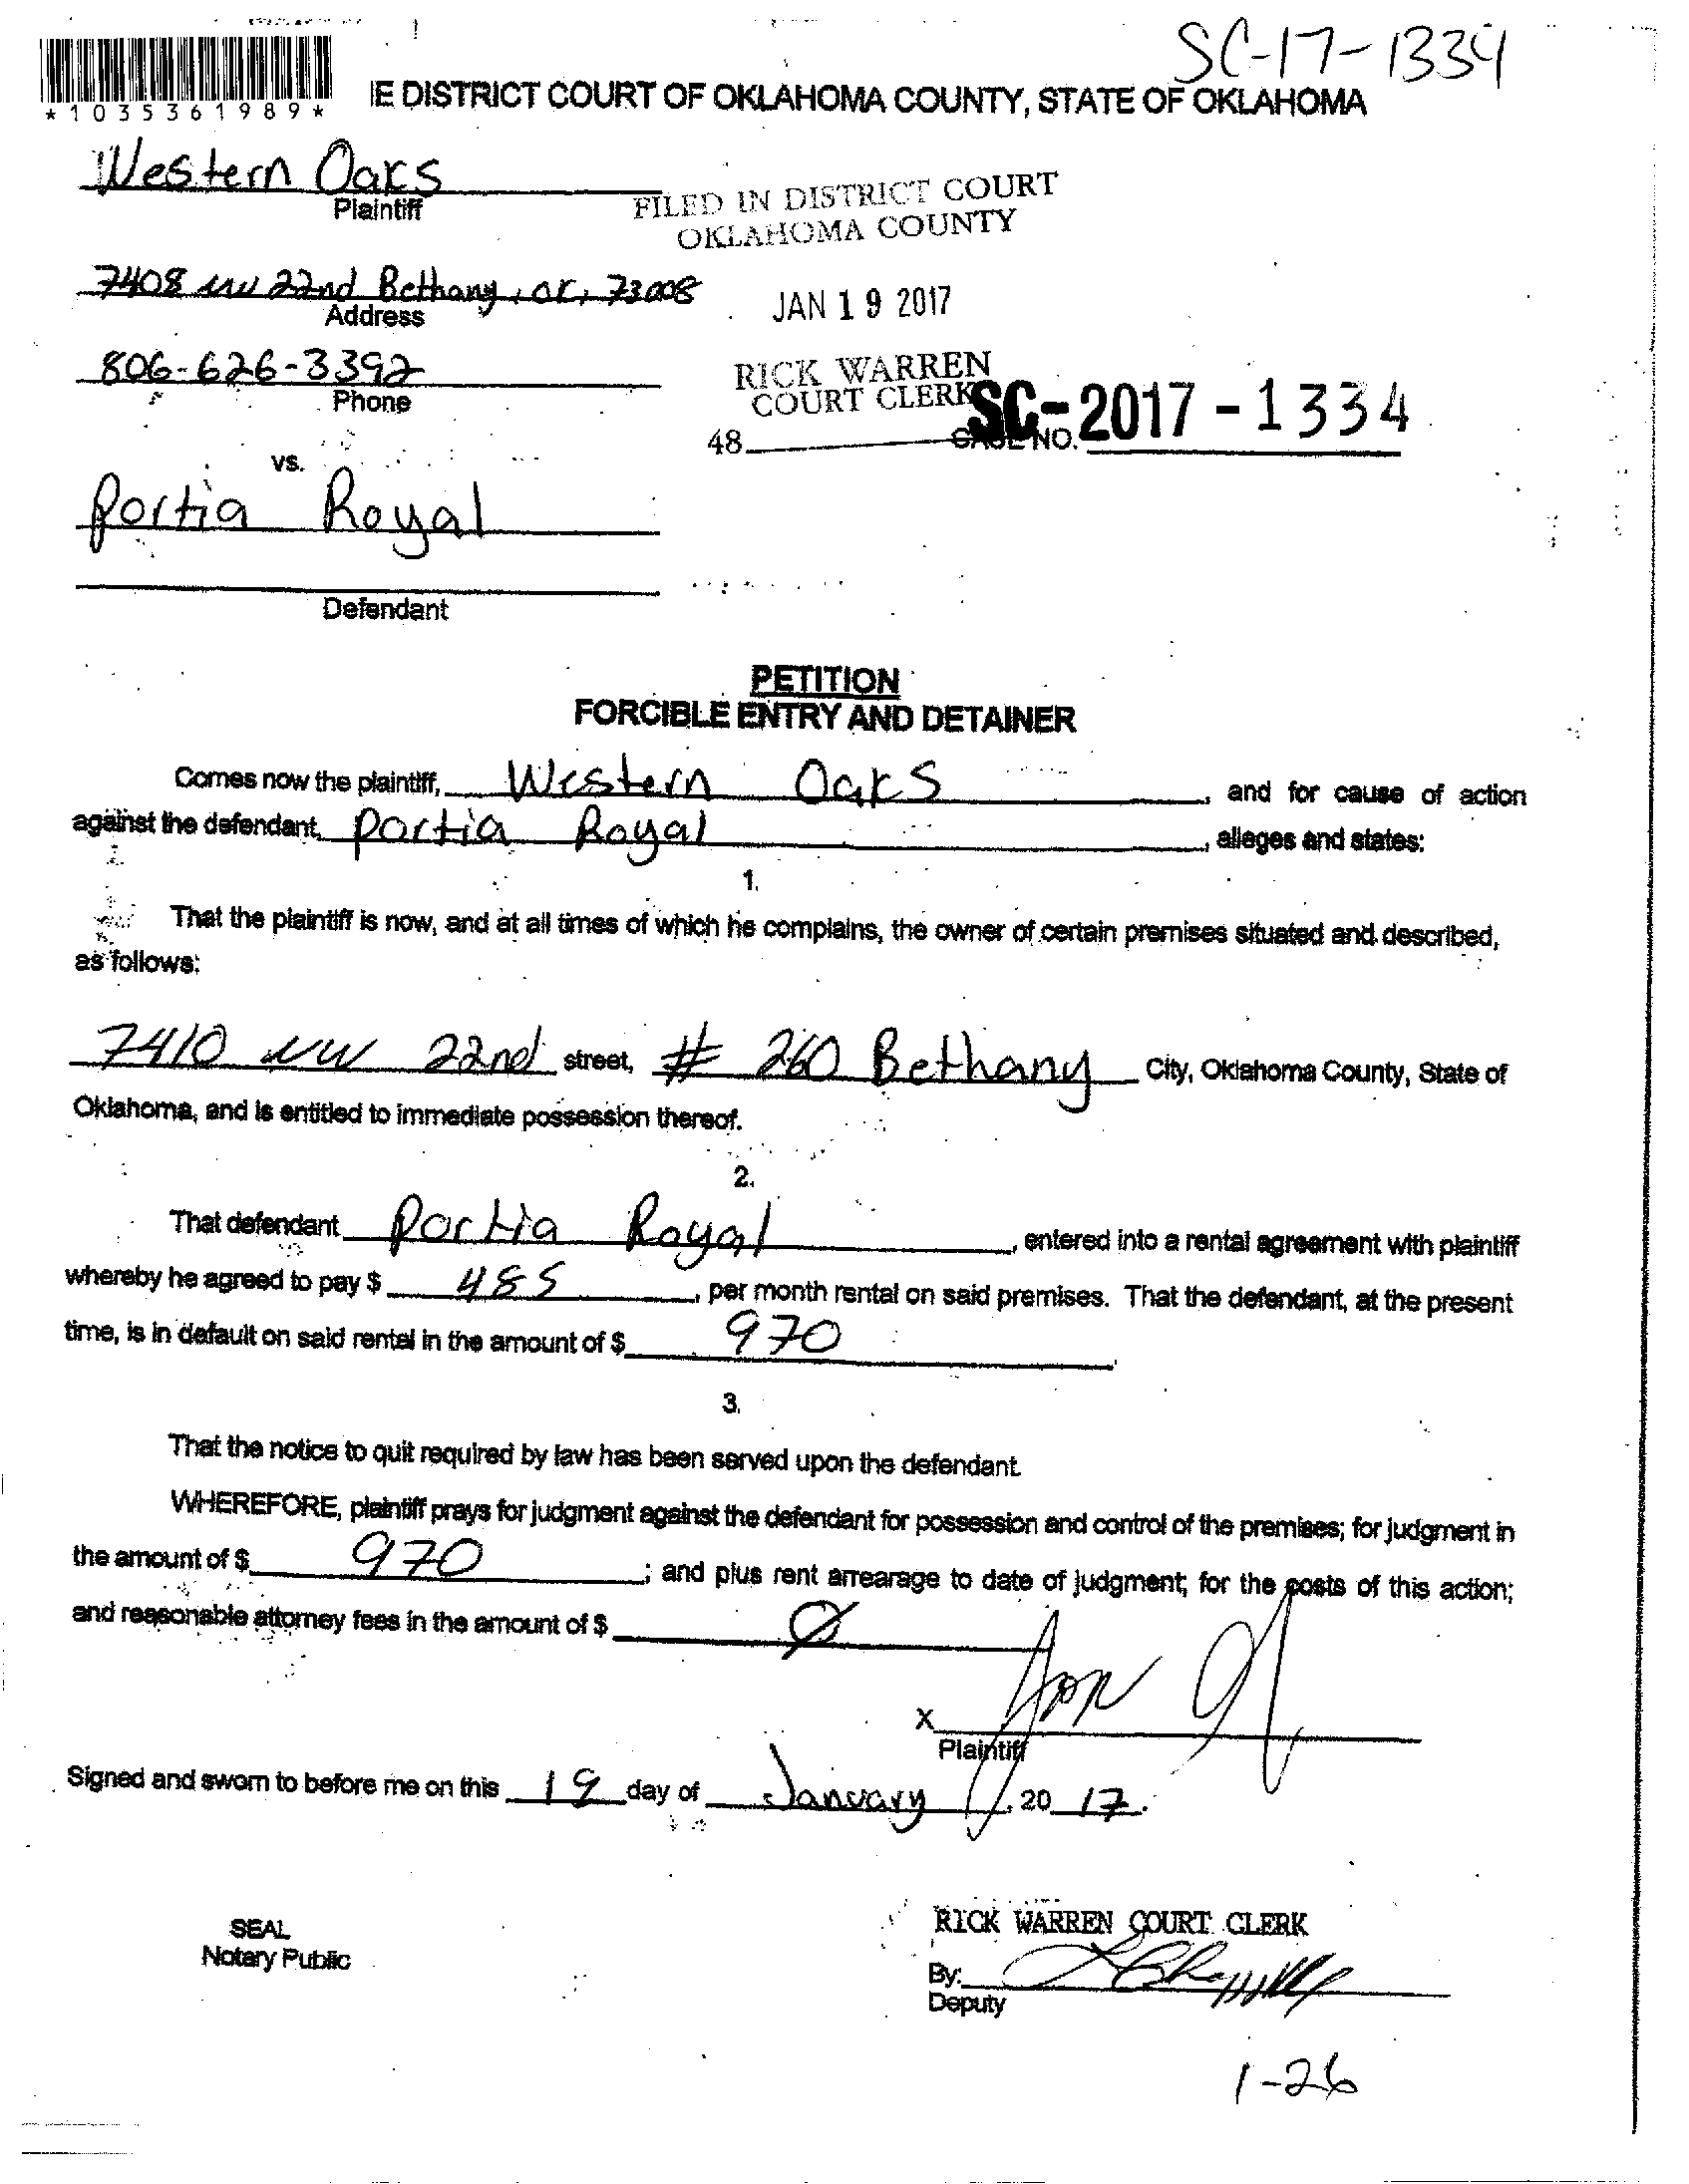 SC-17-1334
*1035361989*
IE DISTRICT COURT OF OKLAHOMA COUNTY, STATE OF OKLAHOMA
Western Oaks
Plaintiff
FILED IN DISTRICT COURT
OKLAHOMA COUNTY
7408 NW 22nd Bethany, OK, 73008
Address
JAN 19 2017
806-626-3392
Phone
RICK WARREN
COURT CLERK
48
CASE NO. SC-2017-1334
vs.
Portia Royal
Defendant
PETITION
FORCIBLE ENTRY AND DETAINER
Comes now the plaintiff, Western Oaks, and for cause of action
against the defendant, Portia Royal, alleges and states:
1.
That the plaintiff is now, and at all times of which he complains, the owner of certain premises situated and described,
as follows:
7410 NW 22nd street, # 260 Bethany City, Oklahoma County, State of
Oklahoma, and is entitled to immediate possession thereof.
2.
That defendant Portia Royal, entered into a rental agreement with plaintiff
whereby he agreed to pay $ 485, per month rental on said premises. That the defendant, at the present
time, is in default on said rental in the amount of $ 970.
3.
That the notice to quit required by law has been served upon the defendant.
WHEREFORE, plaintiff prays for judgment against the defendant for possession and control of the premises; for judgment in
the amount of $ 970; and plus rent arrearage to date of judgment; for the costs of this action;
and reasonable attorney fees in the amount of $ Ø
X
Plaintiff
Signed and sworn to before me on this 19 day of January, 20 17.
SEAL
Notary Public
RICK WARREN COURT CLERK
By:
Deputy
1-26